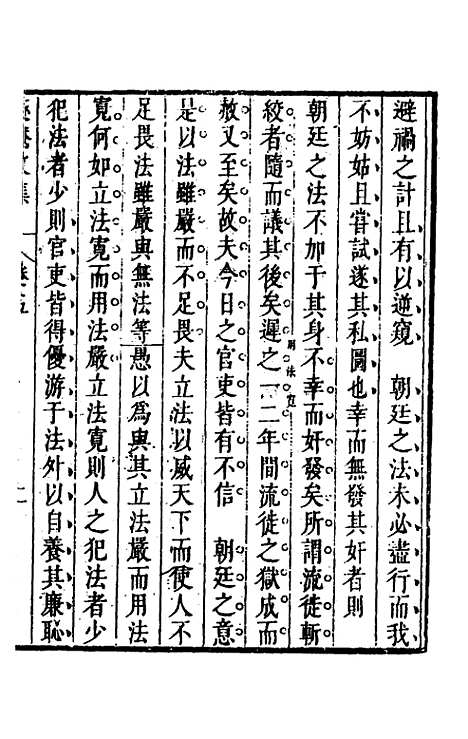 避禍之計且有以逆窺　朝廷之法未必盡行而我
不妨姑且嘗試遂其私圖也幸而無發其奸者則
朝廷之法不加于其身不幸而奸發矣所謂流徒斬
絞者隨而議其後矣遲之一二年間流徒之獄成而
用法寬
赦又至矣故夫今日之官吏皆有不信　朝廷之意
是以法雖嚴而不足畏夫立法以威天下而使人不
足畏法雖嚴與無法等愚以爲與其立法嚴而用法
寬何如立法寬而用法嚴立法寬則人之犯法者少
犯法者少則官吏皆得優游于法外以自養其廉恥
文集